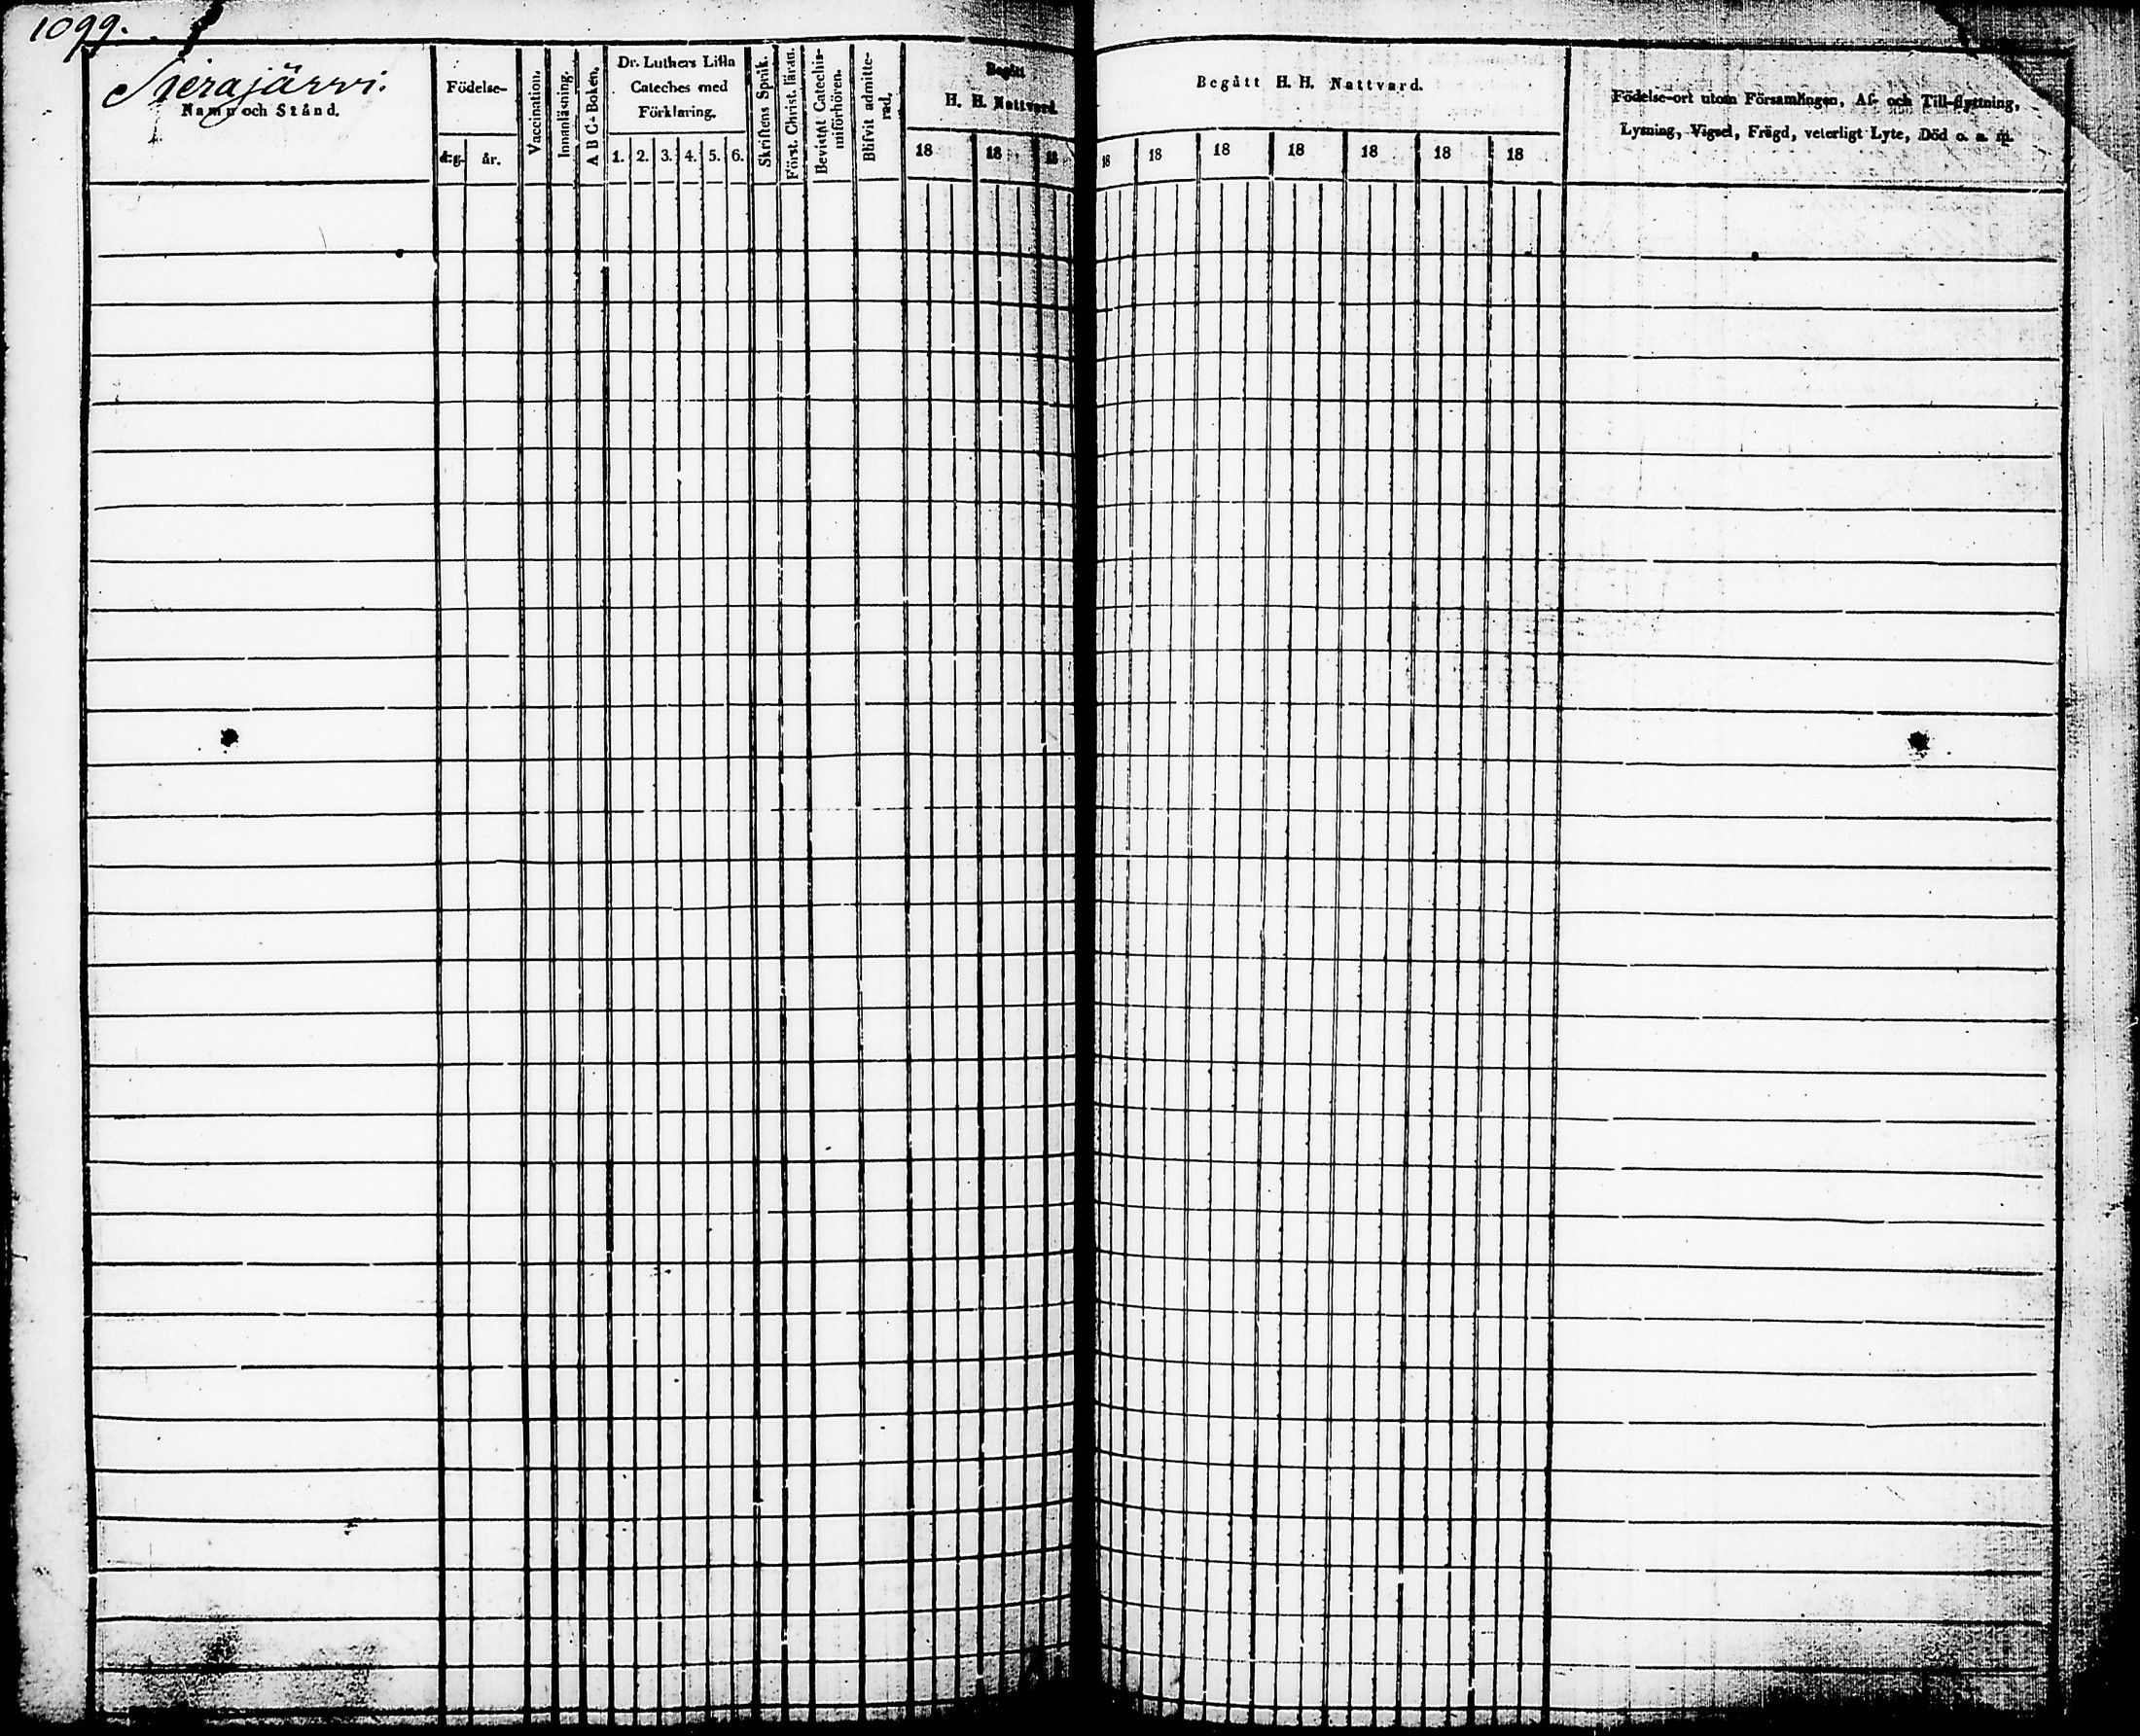 1099.
Sierajärvi.
Namn och Stånd.
Födelse-
dag. år.
Vaccination.
Innanläsning.
A B C-Boken.
Dr. Luthers Lilla
Cateches med
Förklaring.
1. 2. 3. 4. 5. 6.
Skriftens Språk.
Först. Christ. läran.
Bevistat Catechis-
miförhören.
Blifvit admitte-
rad.
Begått
H. H. Nattvard.
18 18 18
Begått H. H. Nattvard.
18 18 18 18 18 18 18
Födelse-ort utom Församlingen, Af- och Till-flyttning,
Lysning, Vigsel, Frägd, veterligt Lyte, Död o. s. m.